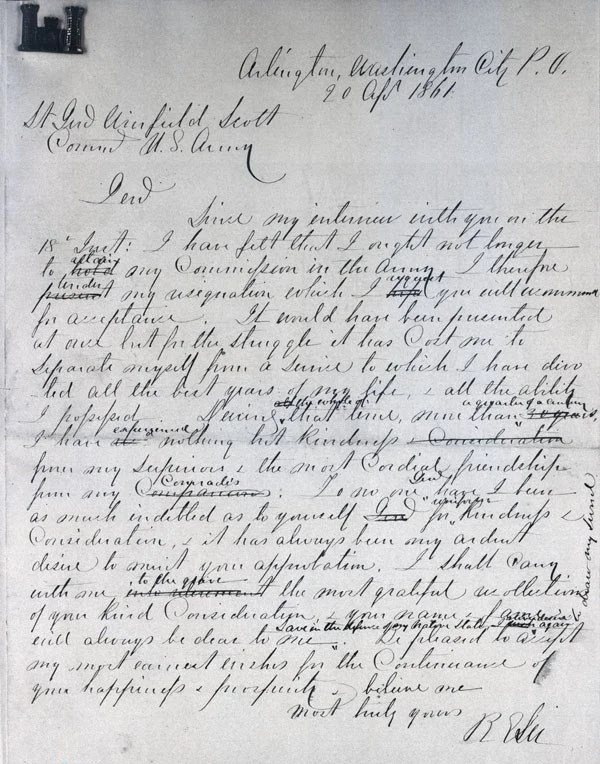 Arlington, Washington City P. O.
20 Apr 1861
Lt Genl Winfield Scott
Commd U. S. Army
Genl
Since my interview with you on the
18th Inst: I have felt that I ought not longer
retain
to hold my Commission in the Army. I therefore
tender request
present my resignation which I you will recommend
for acceptance. It would have been presented
at once but for the struggle it has Cost me to
separate myself from a service to which I have devo
-ted all the best years of my life, & all the ability
I possessed. During the whole of that time, more than a quarter of a century 30 years,
experienced
I have nothing but kindness & Consideration
from my superiors & the most Cordial friendship
Comrades Genl
from my Companions. To no one have I been
uniform
as much indebted as to yourself Genl for kindness &
Consideration, & it has always been my ardent
desire to merit your approbation. I shall carry
to the grave
with me into retirement the most grateful recollections
of your kind Consideration, & your name & fame
will always be dear to me
Save in the defence of my Native State, I never desire again / draw my sword
Be pleased to accept
my most earnest wishes for the Continuance of
your happiness & prosperity & believe me
most truly yours
R E Lee